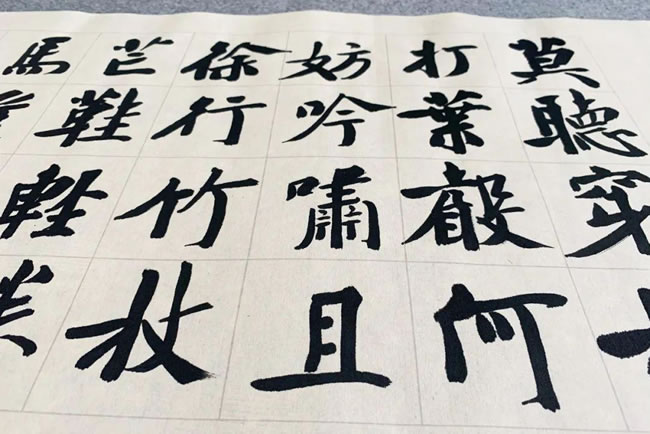 莫聽穿
打葉聲何
妨吟嘯且
徐行竹杖
芒鞋輕
馬